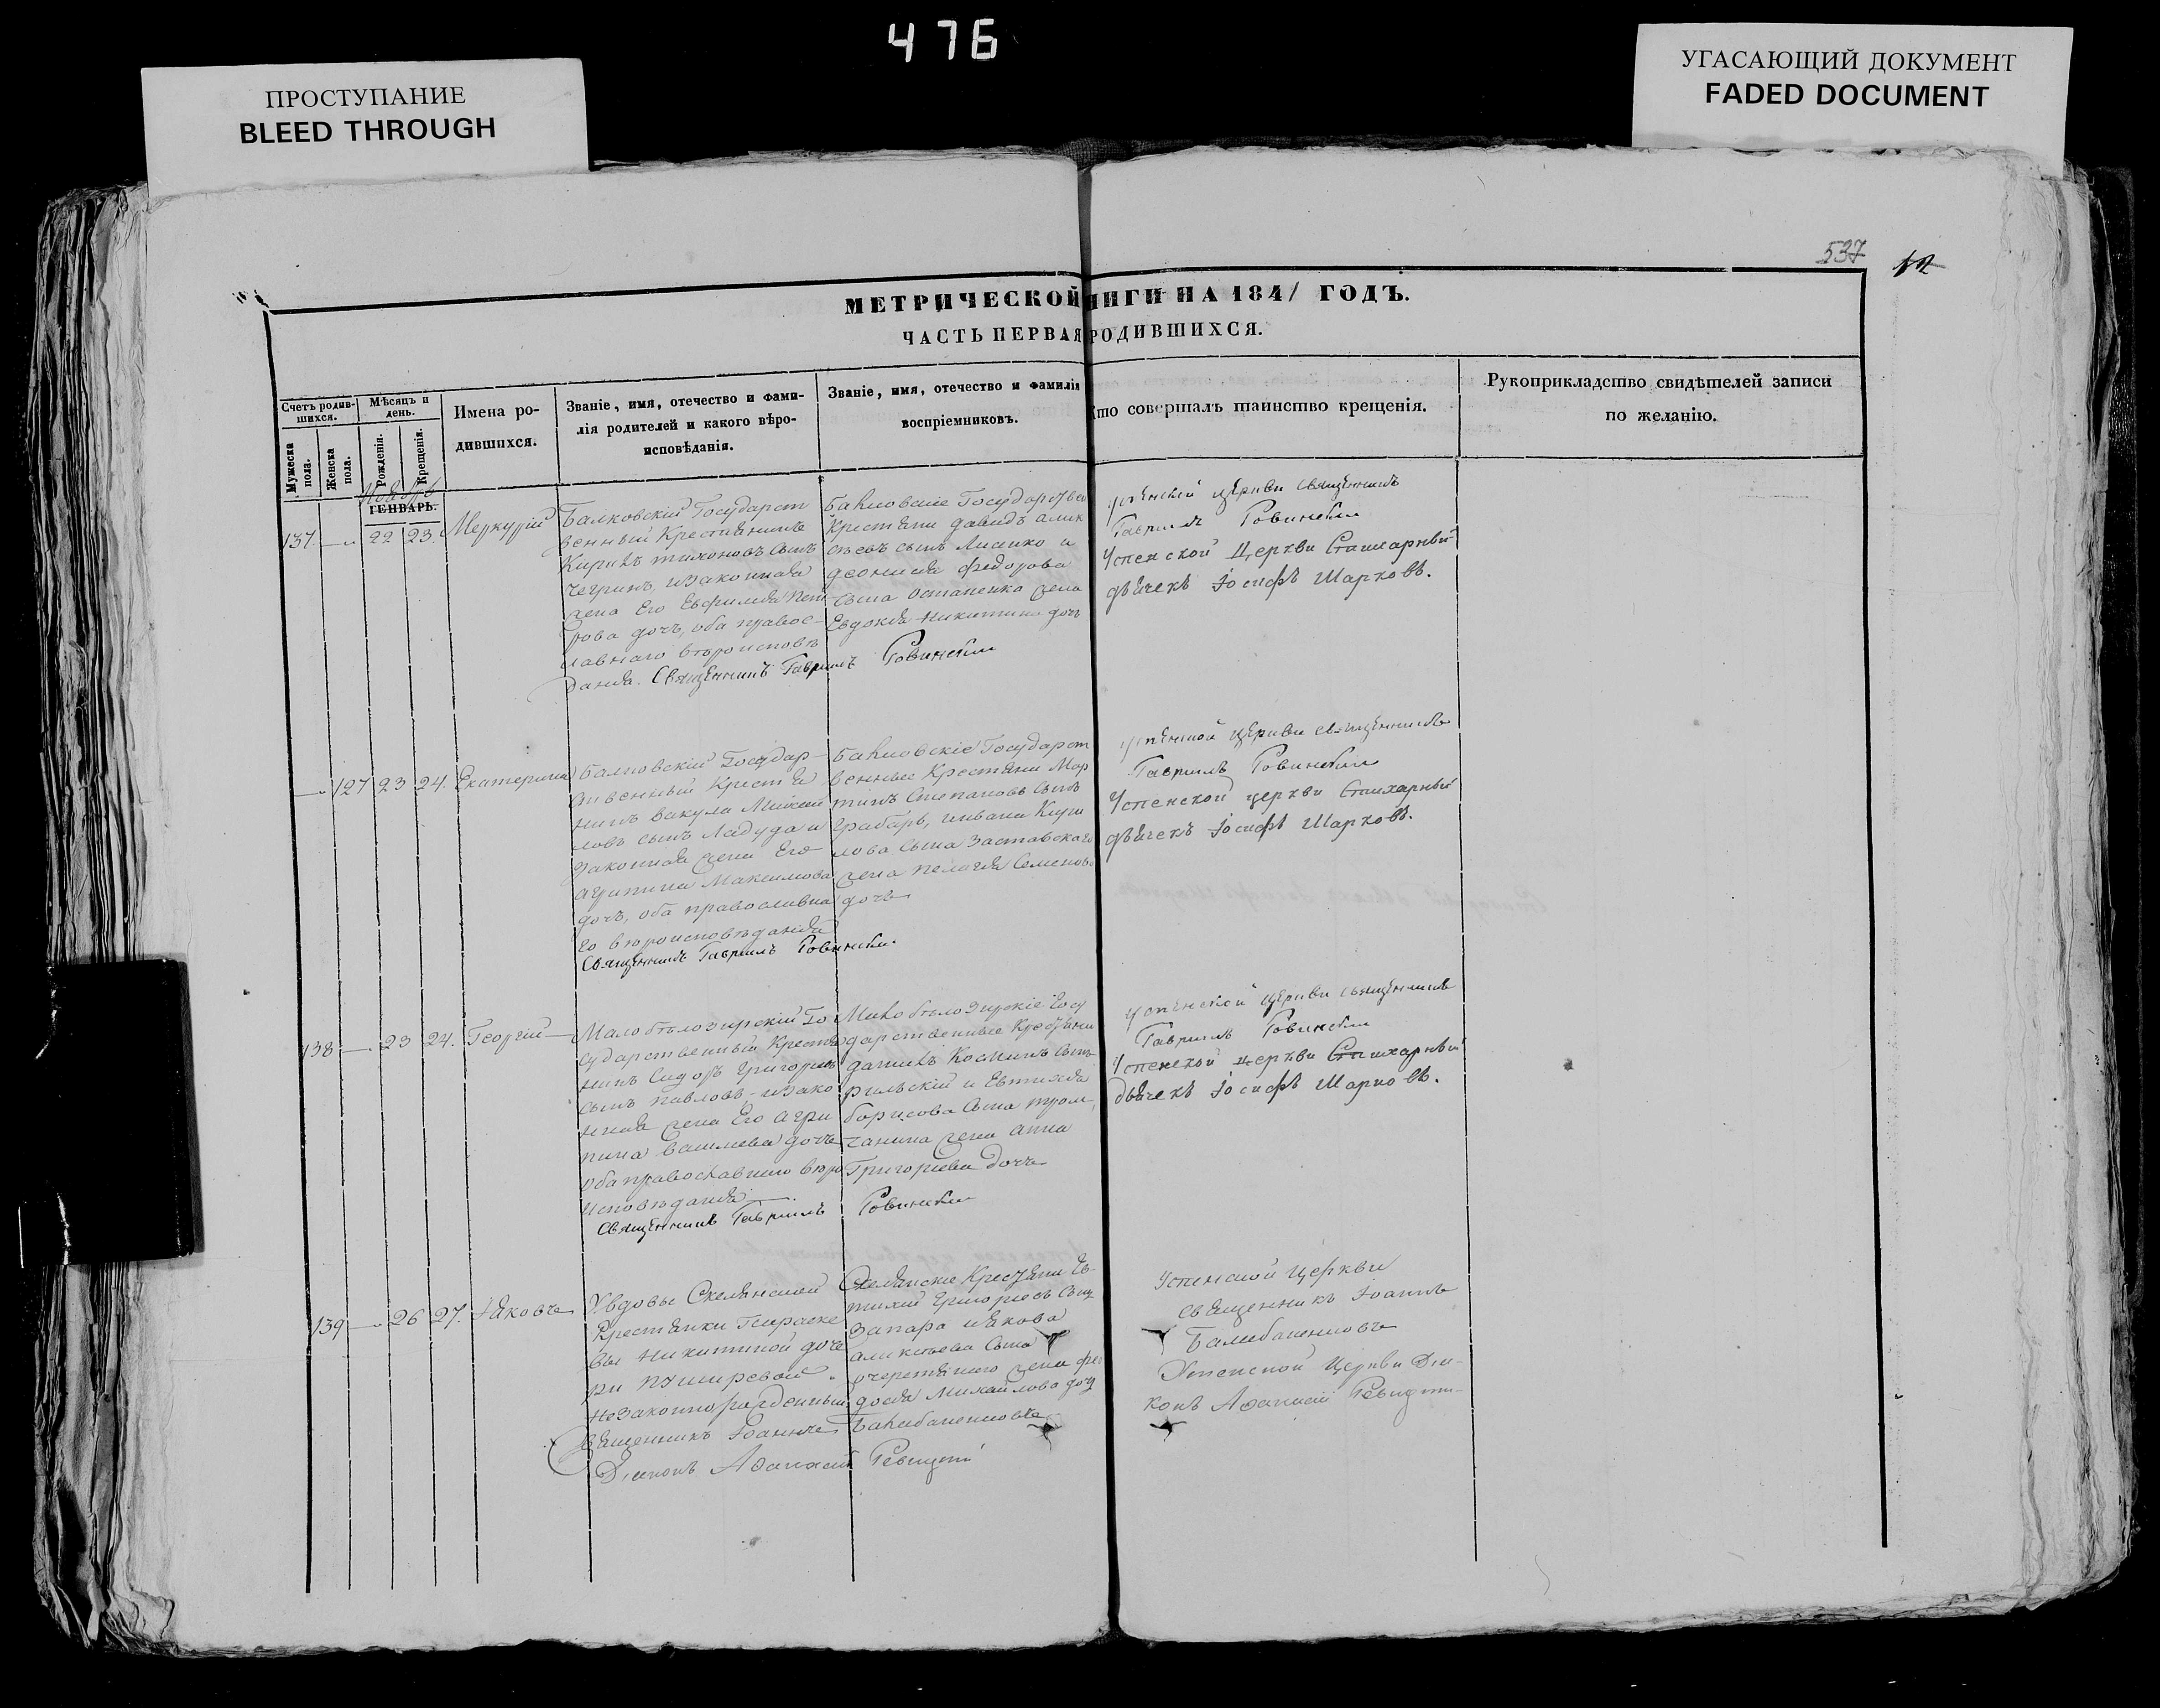 476
ПРОСТУПАНИЕ
BLEED THROUGH
УГАСАЮЩИЙ ДОКУМЕНТ
FADED DOCUMENT
537
МЕТРИЧЕСКОЙ НИГИ НА 1841 ГОДЪ.
ЧАСТЬ ПЕРВАЯ РОДИВШИХСЯ.
Счетъ родив-
шихся.
Мужеска
пола.
Женска
пола.
Мѣсяцъ и
день.
Рожденія.
Крещенія.
Имена ро-
дившихся.
Званіе, имя, отечество и фами-
лія родителей и какого вѣро-
исповѣданія.
Званіе, имя, отечество и фамилія
воспріемниковъ.
Кто совершалъ таинство крещенія.
Рукоприкладство свидѣтелей записи
по желанію.
Ноябрь
ГЕНВАРЬ.
137. 22 23. Меркурій
Государст
венный Крестьянинъ
Тихоновъ сынъ
изаконная
жена Его Евфимія Пет
рова дочь, оба правос-
лавнаго вѣроисповѣ
данія. Священникъ Гавріилъ Ровинскій
Государствен
Крестьяне Давидъ Алек
сѣевъ сынъ Лисенко и
Федорова
сына Остапенка жена
Евдокія Никитина дочь
Успенской церкви священникъ
Гавріилъ Ровинскій
Успенской Церкви Стихарный
дьячекъ Іосифъ Шарковъ.
127 23 24. Екатерина
Государ-
ственный Крестья
нинъ Вакула Михай
ловъ сынъ Ладуда и
законная жена Его
Агрипина Максимова
дочь, оба православна
го вѣроисповѣданія
Священникъ Гавріилъ Ровинскій.
Государст
венные Крестьяне Мар
тинъ Степановъ сынъ
Грабарь, иивана Кири
лова сына Заставскаго
жена Пелагія Семенова
дочь
Успенской церкви священникъ
Гавріилъ Ровинскій
Успенской церкви Стихарный
дьячекъ Іосифъ Шарковъ.
138 23 24. Георгій
Малобѣлозирскій Го
сударственный Крестья
нинъ Сидоръ Григорьевъ
сынъ Павловъ, изако
нная жена Его Агри
пина Васильева дочь
оба православнаго вѣро
исповѣданія
Священникъ Гавріилъ Ровинскій
Малобѣлозирскіе Госу
дарственные Крестьяне
Данилъ Косминъ сынъ
и Евтихія
Борисова сына Тром-
чанина жена Анна
Григорьева дочь
Успенской церкви священникъ
Гавріилъ Ровинскій
Успенской церкви Стихарный
дьячекъ Іосифъ Шарковъ.
139 26 27. Іяковъ
Увдовы Скелянской
Крестьянки Параске
вы Никитиной доче
ри
Незаконнорожденный
Священникъ Іоаннъ
Діаконъ Афанасій
Скелянскіе Крестьяне Ев-
тихій Григорьевъ сынъ
Запара иякова
Алексѣева сына
жена Фео
досія Михайлова дочь
Успенской Церкви
священникъ Іоаннъ
Успенской Церкви Діа-
конъ Афанасій